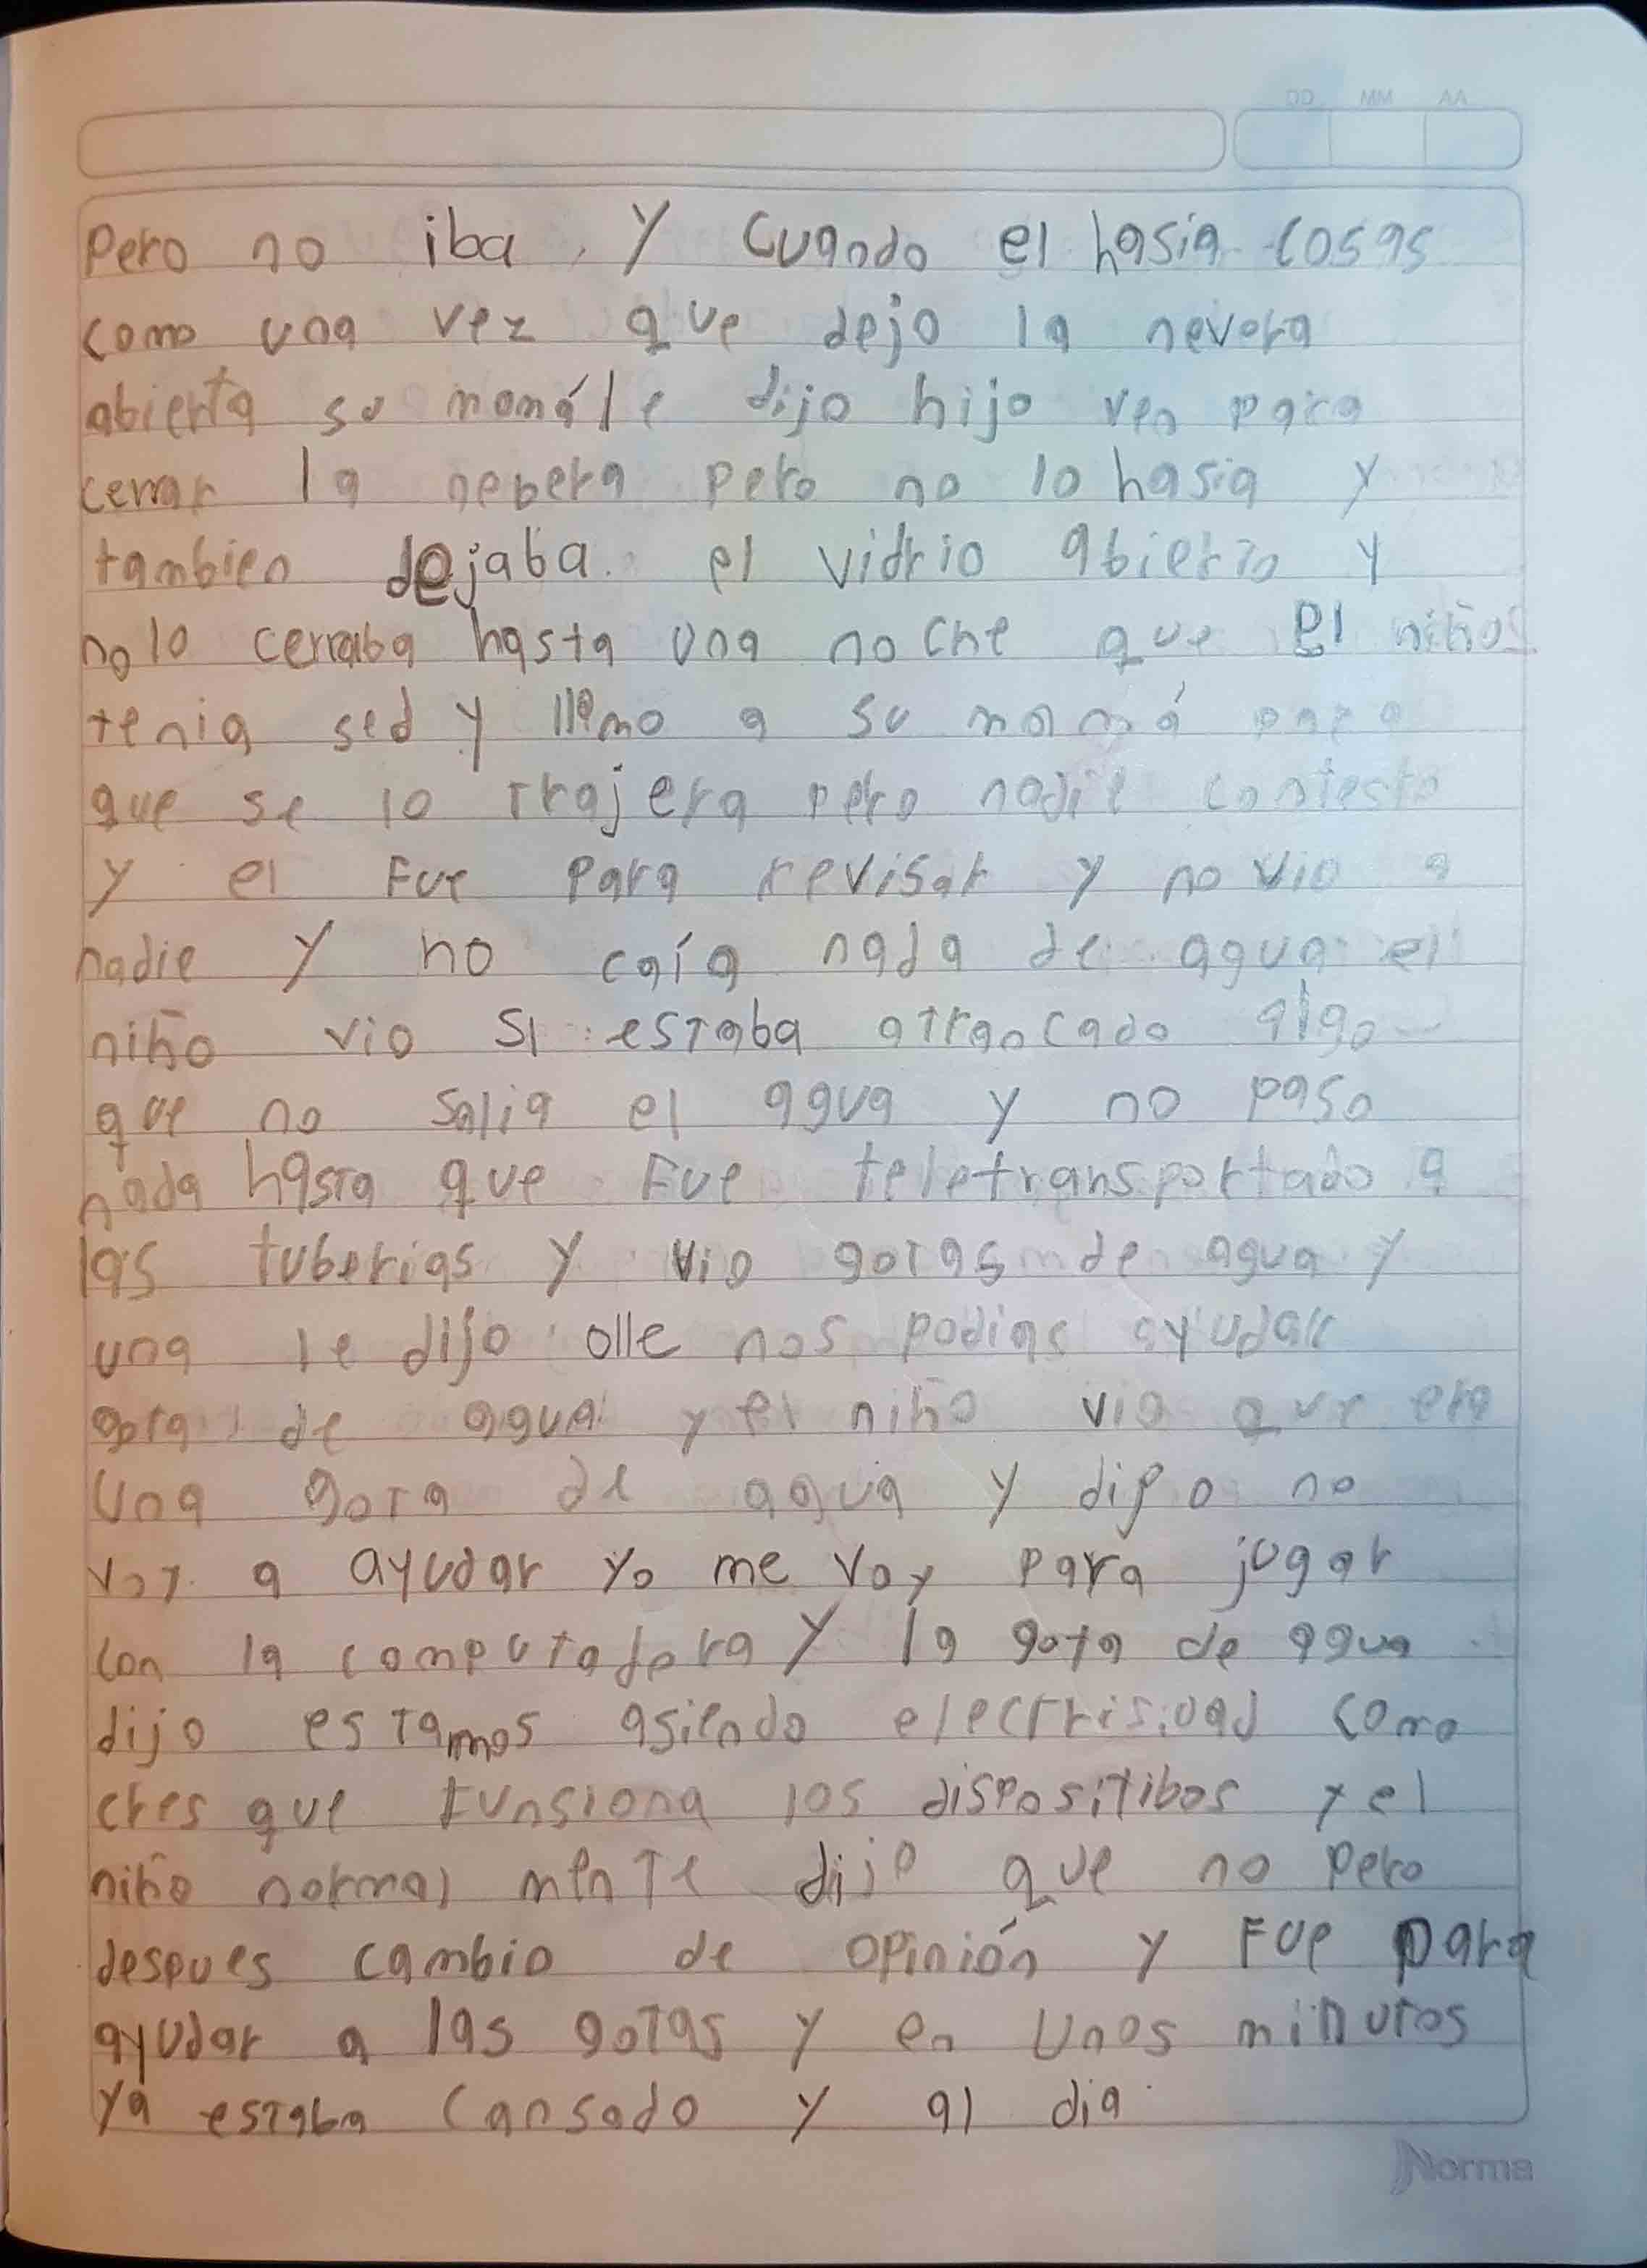 DD MM AA
Pero no iba, y cuando el hasia cosas
como una vez que dejo la nevera
abierta su mamá le dijo hijo ven para
cerrar la nebera pero no lo hasia y
tambien dejaba el vidrio abierto y
no lo cerraba hasta una noche que el niños
tenia sed y llamo a su mamá para
que se lo trajera pero nadie contesto
y el Fue para revisar y no vio a
nadie y no caía nada de agua el
niño vio si estaba atrancado algo
que no salia el agua y no paso
nada hasta que Fue teletransportado a
las tuberias y vio gotas de agua y
una le dijo olle nos podias ayudar
gota de agua y el niño vio que era
una gota de agua y dijo no
voy a ayudar yo me voy para jugar
con la computadora y la gota de agua
dijo estamos asiendo electrisidad como
cres que funsiona los dispositibos y el
niño normal mente dijo que no pero
despues cambio de opinión y Fue para
ayudar a las gotas y en unos minutos
ya estaba cansado y al dia
Norma